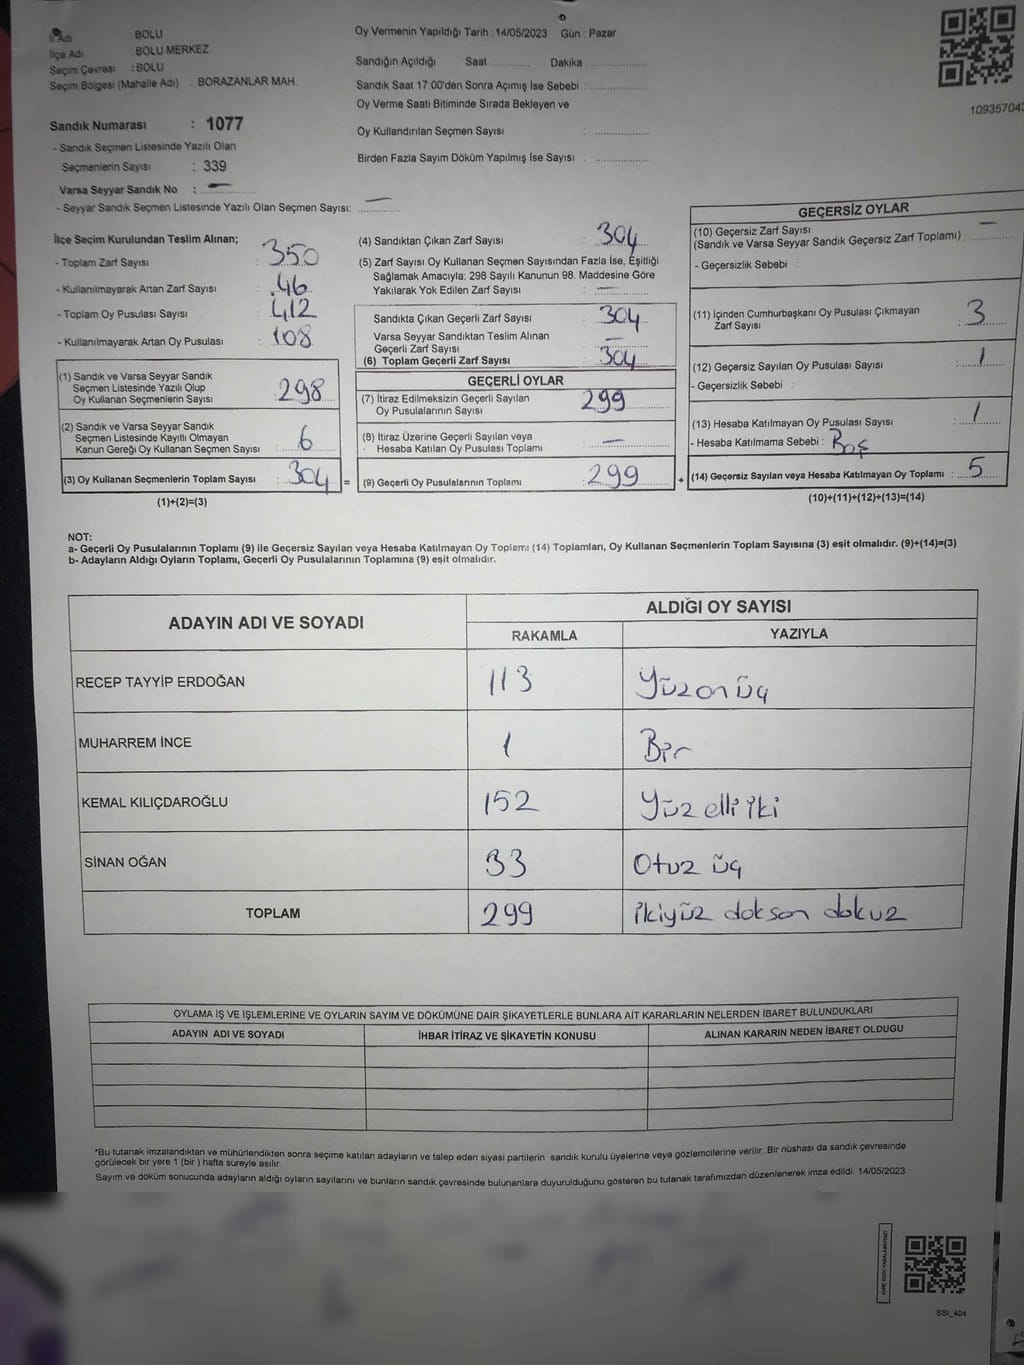 İl Adı : BOLU
İlçe Adı : BOLU MERKEZ
Seçim Çevresi : BOLU
Seçim Bölgesi (Mahalle Adı) : BORAZANLAR MAH.
Sandık Numarası : 1077
- Sandık Seçmen Listesinde Yazılı Olan
Seçmenlerin Sayısı : 339
Varsa Seyyar Sandık No : —
- Seyyar Sandık Seçmen Listesinde Yazılı Olan Seçmen Sayısı: —
Oy Vermenin Yapıldığı Tarih : 14/05/2023 Gün : Pazar
Sandığın Açıldığı Saat ............ Dakika ............
Sandık Saat 17:00'den Sonra Açımış İse Sebebi : ............
Oy Verme Saati Bitiminde Sırada Bekleyen ve
Oy Kullandırılan Seçmen Sayısı : ............
Birden Fazla Sayım Döküm Yapılmış İse Sayısı : ............
10935704
İlçe Seçim Kurulundan Teslim Alınan;
- Toplam Zarf Sayısı : 350
- Kullanılmayarak Artan Zarf Sayısı : 46
- Toplam Oy Pusulası Sayısı : 412
- Kullanılmayarak Artan Oy Pusulası : 108
(1) Sandık ve Varsa Seyyar Sandık
Seçmen Listesinde Yazılı Olup
Oy Kullanan Seçmenlerin Sayısı : 298
(2) Sandık ve Varsa Seyyar Sandık
Seçmen Listesinde Kayıtlı Olmayan
Kanun Gereği Oy Kullanan Seçmen Sayısı : 6
(3) Oy Kullanan Seçmenlerin Toplam Sayısı : 304 =
(1)+(2)=(3)
(4) Sandıktan Çıkan Zarf Sayısı : 304
(5) Zarf Sayısı Oy Kullanan Seçmen Sayısından Fazla İse, Eşitliği
Sağlamak Amacıyla; 298 Sayılı Kanunun 98. Maddesine Göre
Yakılarak Yok Edilen Zarf Sayısı : —
Sandıkta Çıkan Geçerli Zarf Sayısı : 304
Varsa Seyyar Sandıktan Teslim Alınan
Geçerli Zarf Sayısı : —
(6) Toplam Geçerli Zarf Sayısı : 304
GEÇERLİ OYLAR
(7) İtiraz Edilmeksizin Geçerli Sayılan
Oy Pusulalarının Sayısı : 299
(8) İtiraz Üzerine Geçerli Sayılan veya
Hesaba Katılan Oy Pusulası Toplamı : —
(9) Geçerli Oy Pusulalarının Toplamı : 299 +
GEÇERSİZ OYLAR
(10) Geçersiz Zarf Sayısı
(Sandık ve Varsa Seyyar Sandık Geçersiz Zarf Toplamı) : —
- Geçersizlik Sebebi :
(11) İçinden Cumhurbaşkanı Oy Pusulası Çıkmayan
Zarf Sayısı : 3
(12) Geçersiz Sayılan Oy Pusulası Sayısı : 1
- Geçersizlik Sebebi :
(13) Hesaba Katılmayan Oy Pusulası Sayısı : 1
- Hesaba Katılmama Sebebi : Boş
(14) Geçersiz Sayılan veya Hesaba Katılmayan Oy Toplamı : 5
(10)+(11)+(12)+(13)=(14)
NOT:
a- Geçerli Oy Pusulalarının Toplamı (9) ile Geçersiz Sayılan veya Hesaba Katılmayan Oy Toplamı (14) Toplamları, Oy Kullanan Seçmenlerin Toplam Sayısına (3) eşit olmalıdır. (9)+(14)=(3)
b- Adayların Aldığı Oyların Toplamı, Geçerli Oy Pusulalarının Toplamına (9) eşit olmalıdır.
ADAYIN ADI VE SOYADI
ALDIĞI OY SAYISI
RAKAMLA YAZIYLA
RECEP TAYYİP ERDOĞAN 113 Yüzonüç
MUHARREM İNCE 1 Bir
KEMAL KILIÇDAROĞLU 152 Yüz elli iki
SİNAN OĞAN 33 Otuz üç
TOPLAM 299 ikiyüz dokson dokuz
OYLAMA İŞ VE İŞLEMLERİNE VE OYLARIN SAYIM VE DÖKÜMÜNE DAİR ŞİKAYETLERLE BUNLARA AİT KARARLARIN NELERDEN İBARET BULUNDUKLARI
ADAYIN ADI VE SOYADI İHBAR İTİRAZ VE ŞİKAYETİN KONUSU ALINAN KARARIN NEDEN İBARET OLDUGU
*Bu tutanak imzalandıktan ve mühürlendikten sonra seçime katılan adayların ve talep eden siyasi partilerin sandık kurulu üyelerine veya gözlemcilerine verilir. Bir nüshası da sandık çevresinde
görülecek bir yere 1 (bir ) hafta süreyle asılır.
Sayım ve döküm sonucunda adayların aldığı oyların sayılarını ve bunların sandık çevresinde bulunanlara duyurulduğunu gösteren bu tutanak tarafımızdan düzenlenerek imza edildi. 14/05/2023
SSI_404